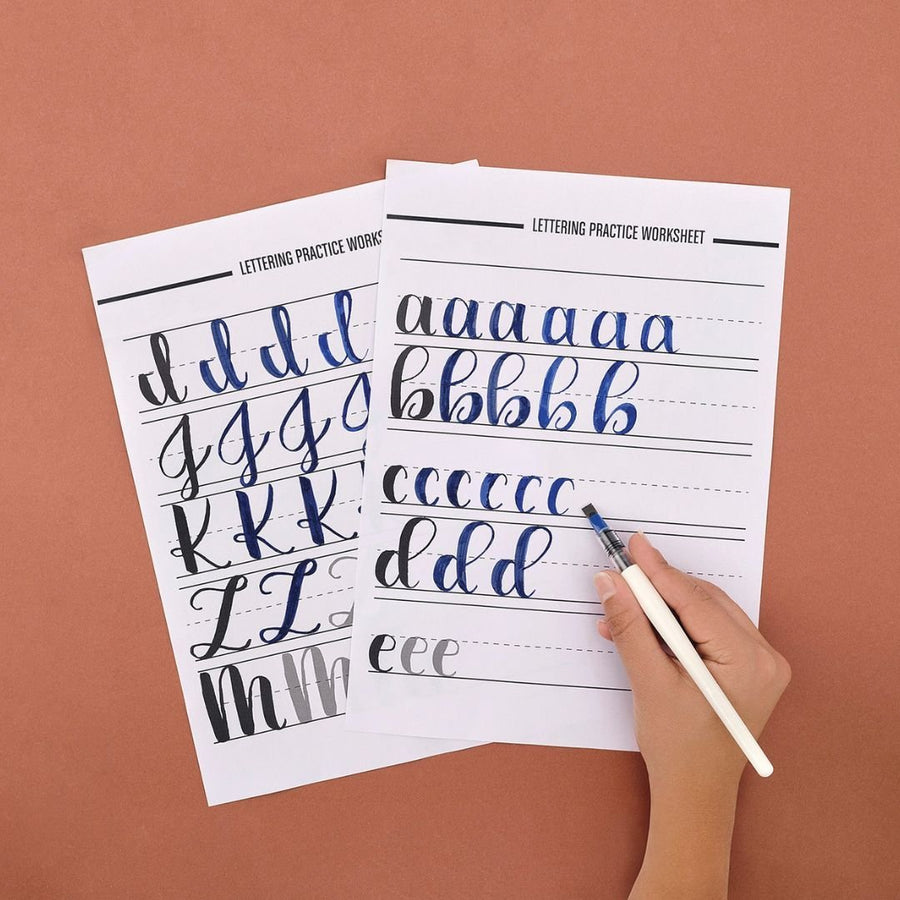 LETTERING PRACTICE WORKS
d d d d
J J J J
K K K
L L L
m m
LETTERING PRACTICE WORKSHEET
a a a a a a
b b b b b
c c c c c c
d d d
e e e